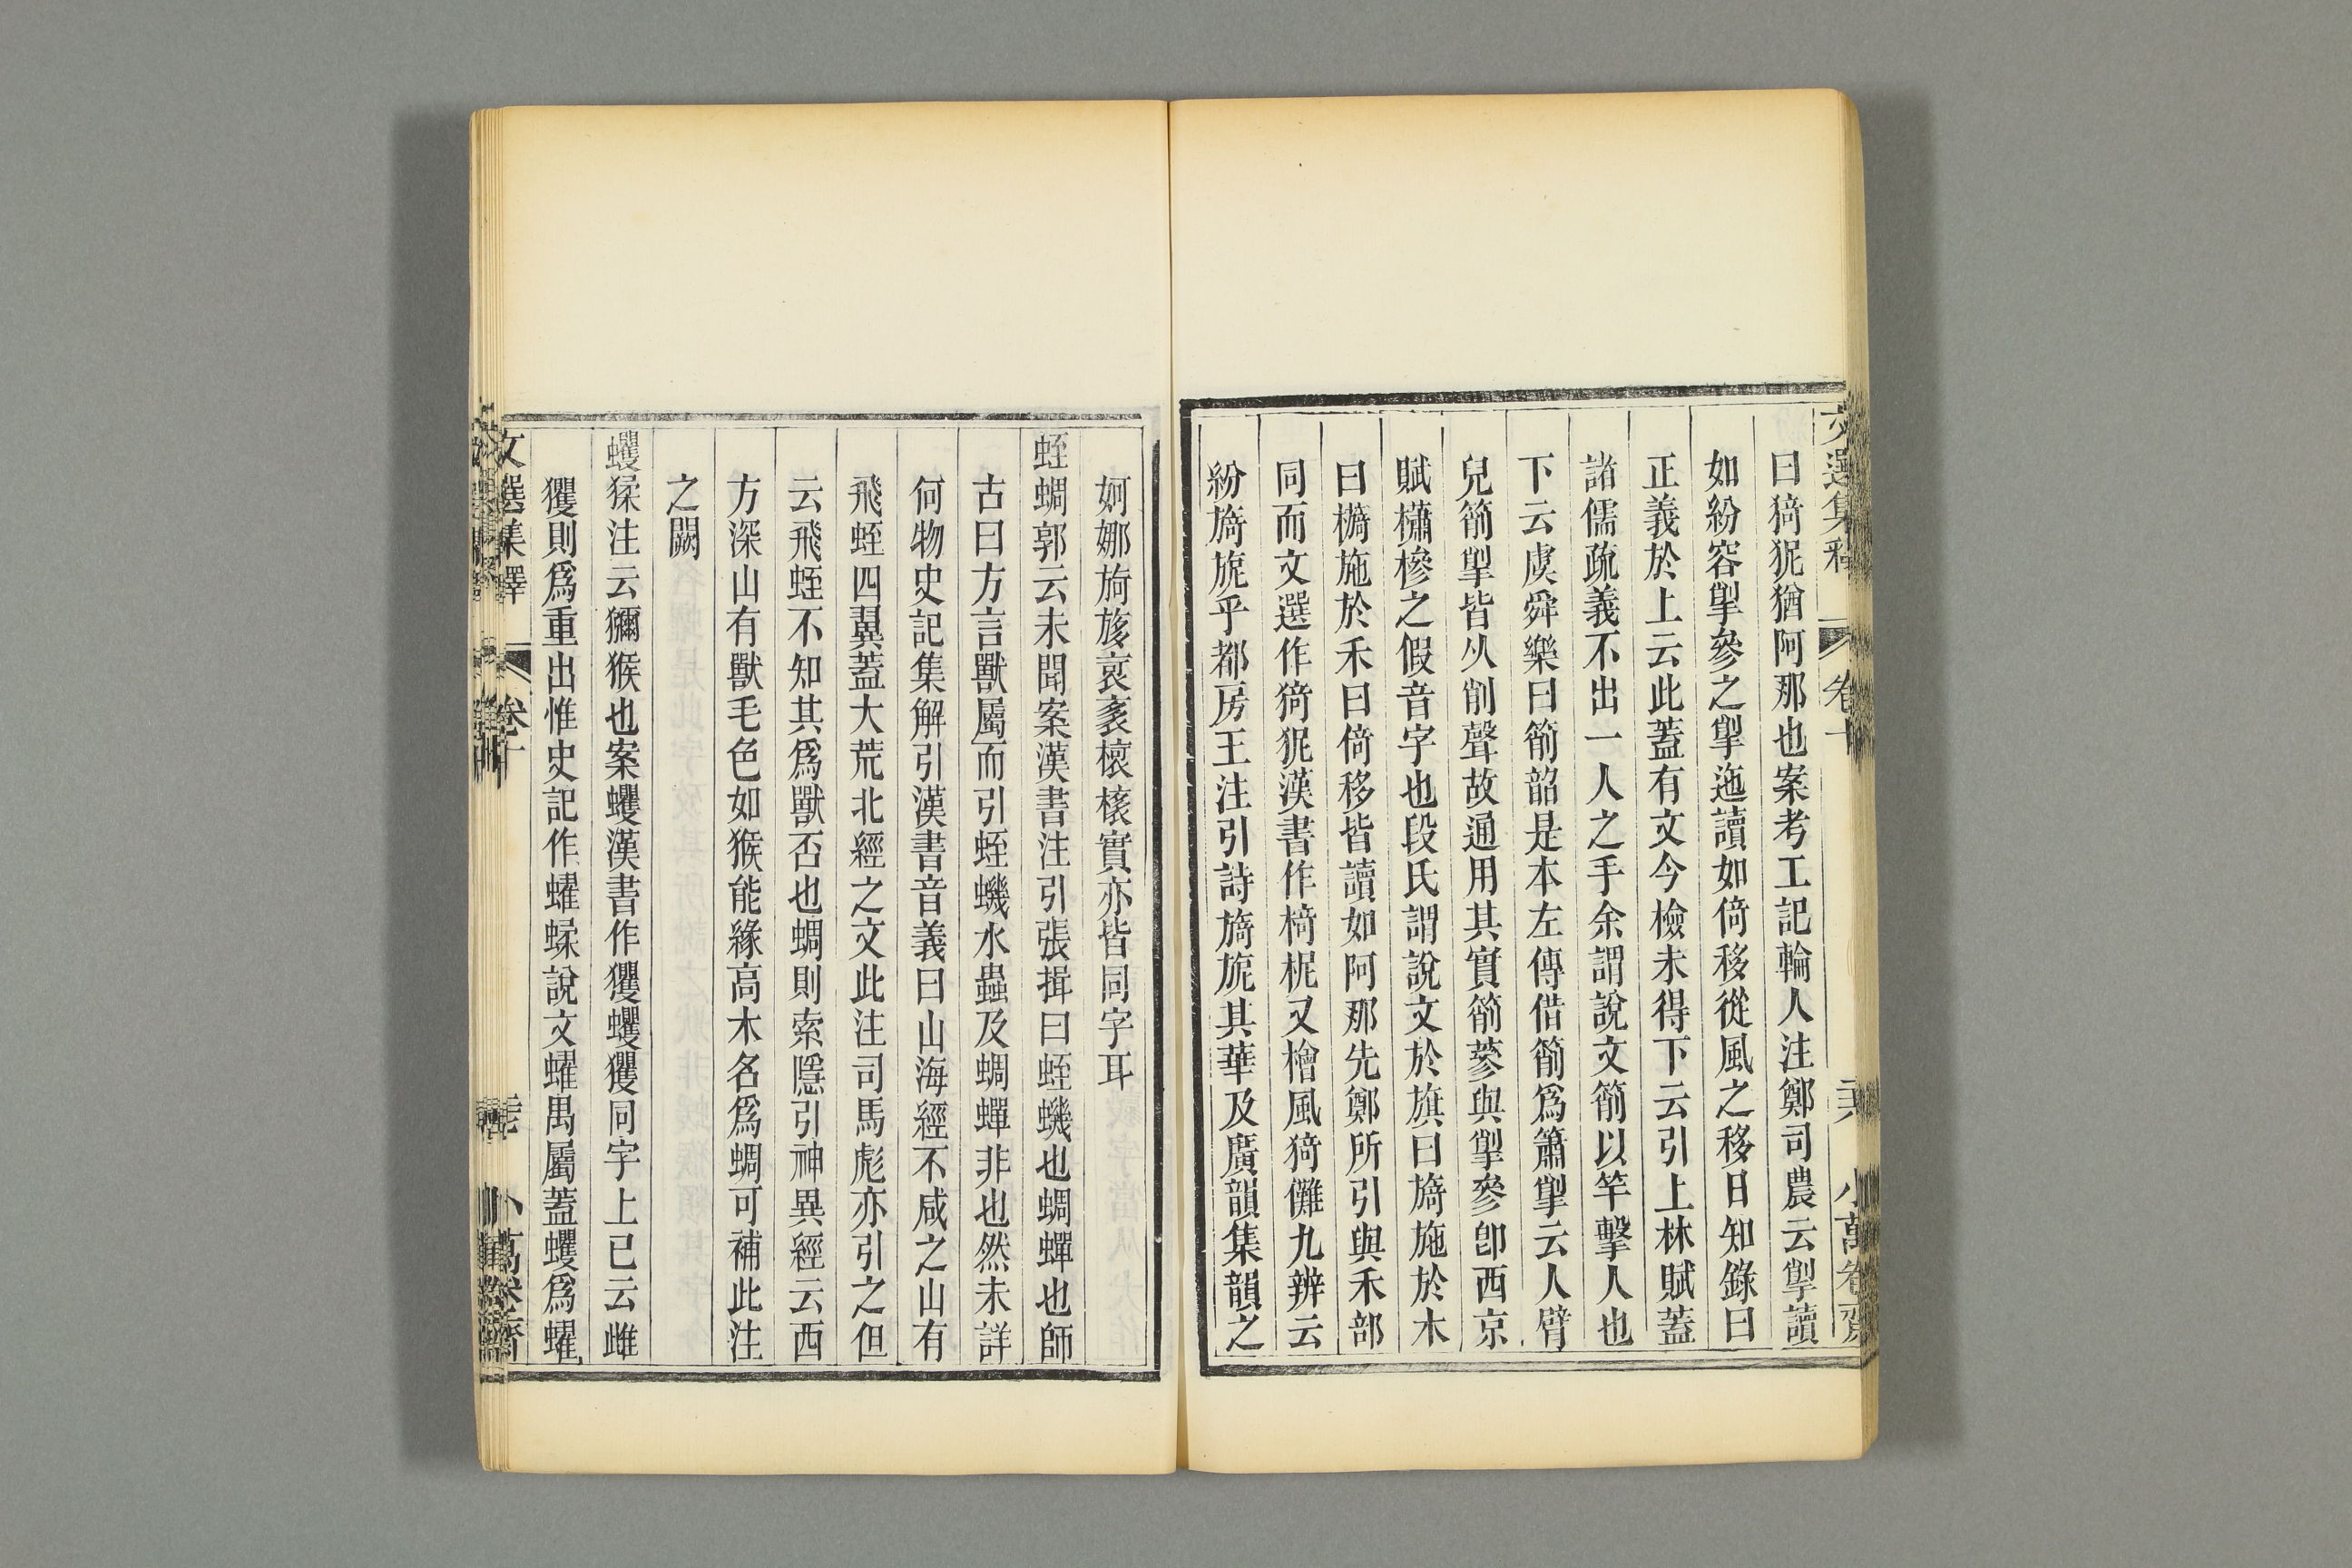 文選集釋 卷十 二六 小萬卷齋
曰猗狔猶阿那也案考工記輪人注鄭司農云掣讀
如紛容掣參之掣迤讀如倚移從風之移日知錄曰
正義於上云此蓋有文今檢未得下云引上林賦蓋
諸儒疏義不出一人之手余謂說文箾以竿擊人也
下云虞舜樂曰箾韶是本左傳借箾爲簫掣云人臂
皃箾掣皆从削聲故通用其實箾蔘與掣參卽西京
賦橚槮之假音字也段氏謂說文於旗曰旖施於木
曰檹施於禾曰倚移皆讀如阿那先鄭所引與禾部
同而文選作猗狔漢書作椅柅又檜風猗儺九辨云
紛旖旎乎都房王注引詩旖旎其華及廣韻集韻之
妸娜旑㫊哀袲榱橠實亦皆同字耳
蛭蜩郭云未聞案漢書注引張揖曰蛭蟣也蜩蟬也師
古曰方言獸屬而引蛭蟣水蟲及蜩蟬非也然未詳
何物史記集解引漢書音義曰山海經不咸之山有
飛蛭四翼蓋大荒北經之文此注司馬彪亦引之但
云飛蛭不知其爲獸否也蜩則索隱引神異經云西
方深山有獸毛色如猴能緣高木名爲蜩可補此注
之闕
蠼猱注云獼猴也案蠼漢書作玃蠼玃同字上已云雌
玃則爲重出惟史記作蠷蝚說文蠷禺屬蓋蠼爲蠷
文選集釋 卷十 小萬卷齋